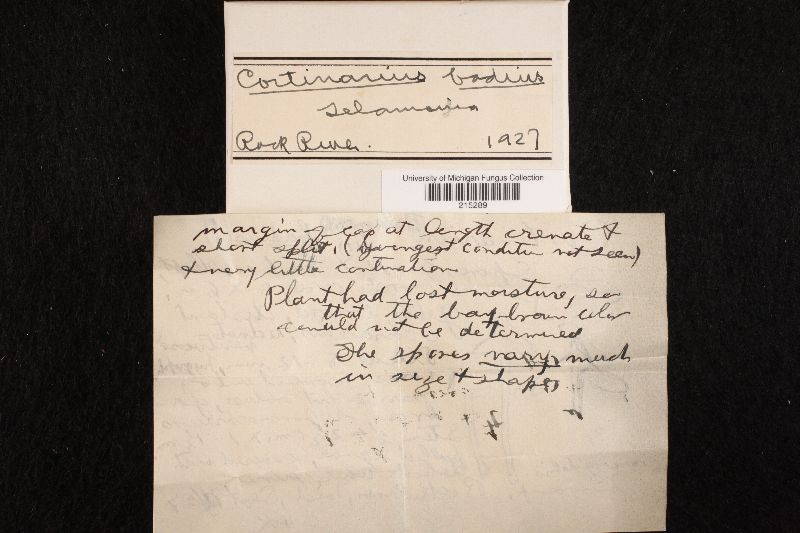 Cortinarius badius
Rock River. 1927
University of Michigan Fungus Collection
215289
margin of cap at length crenate &
short split, (Youngest condition not seen)
& very little
Plant had lost moisture, so
that the bay brown color
could not be determined
The spores vary much
in size & shape